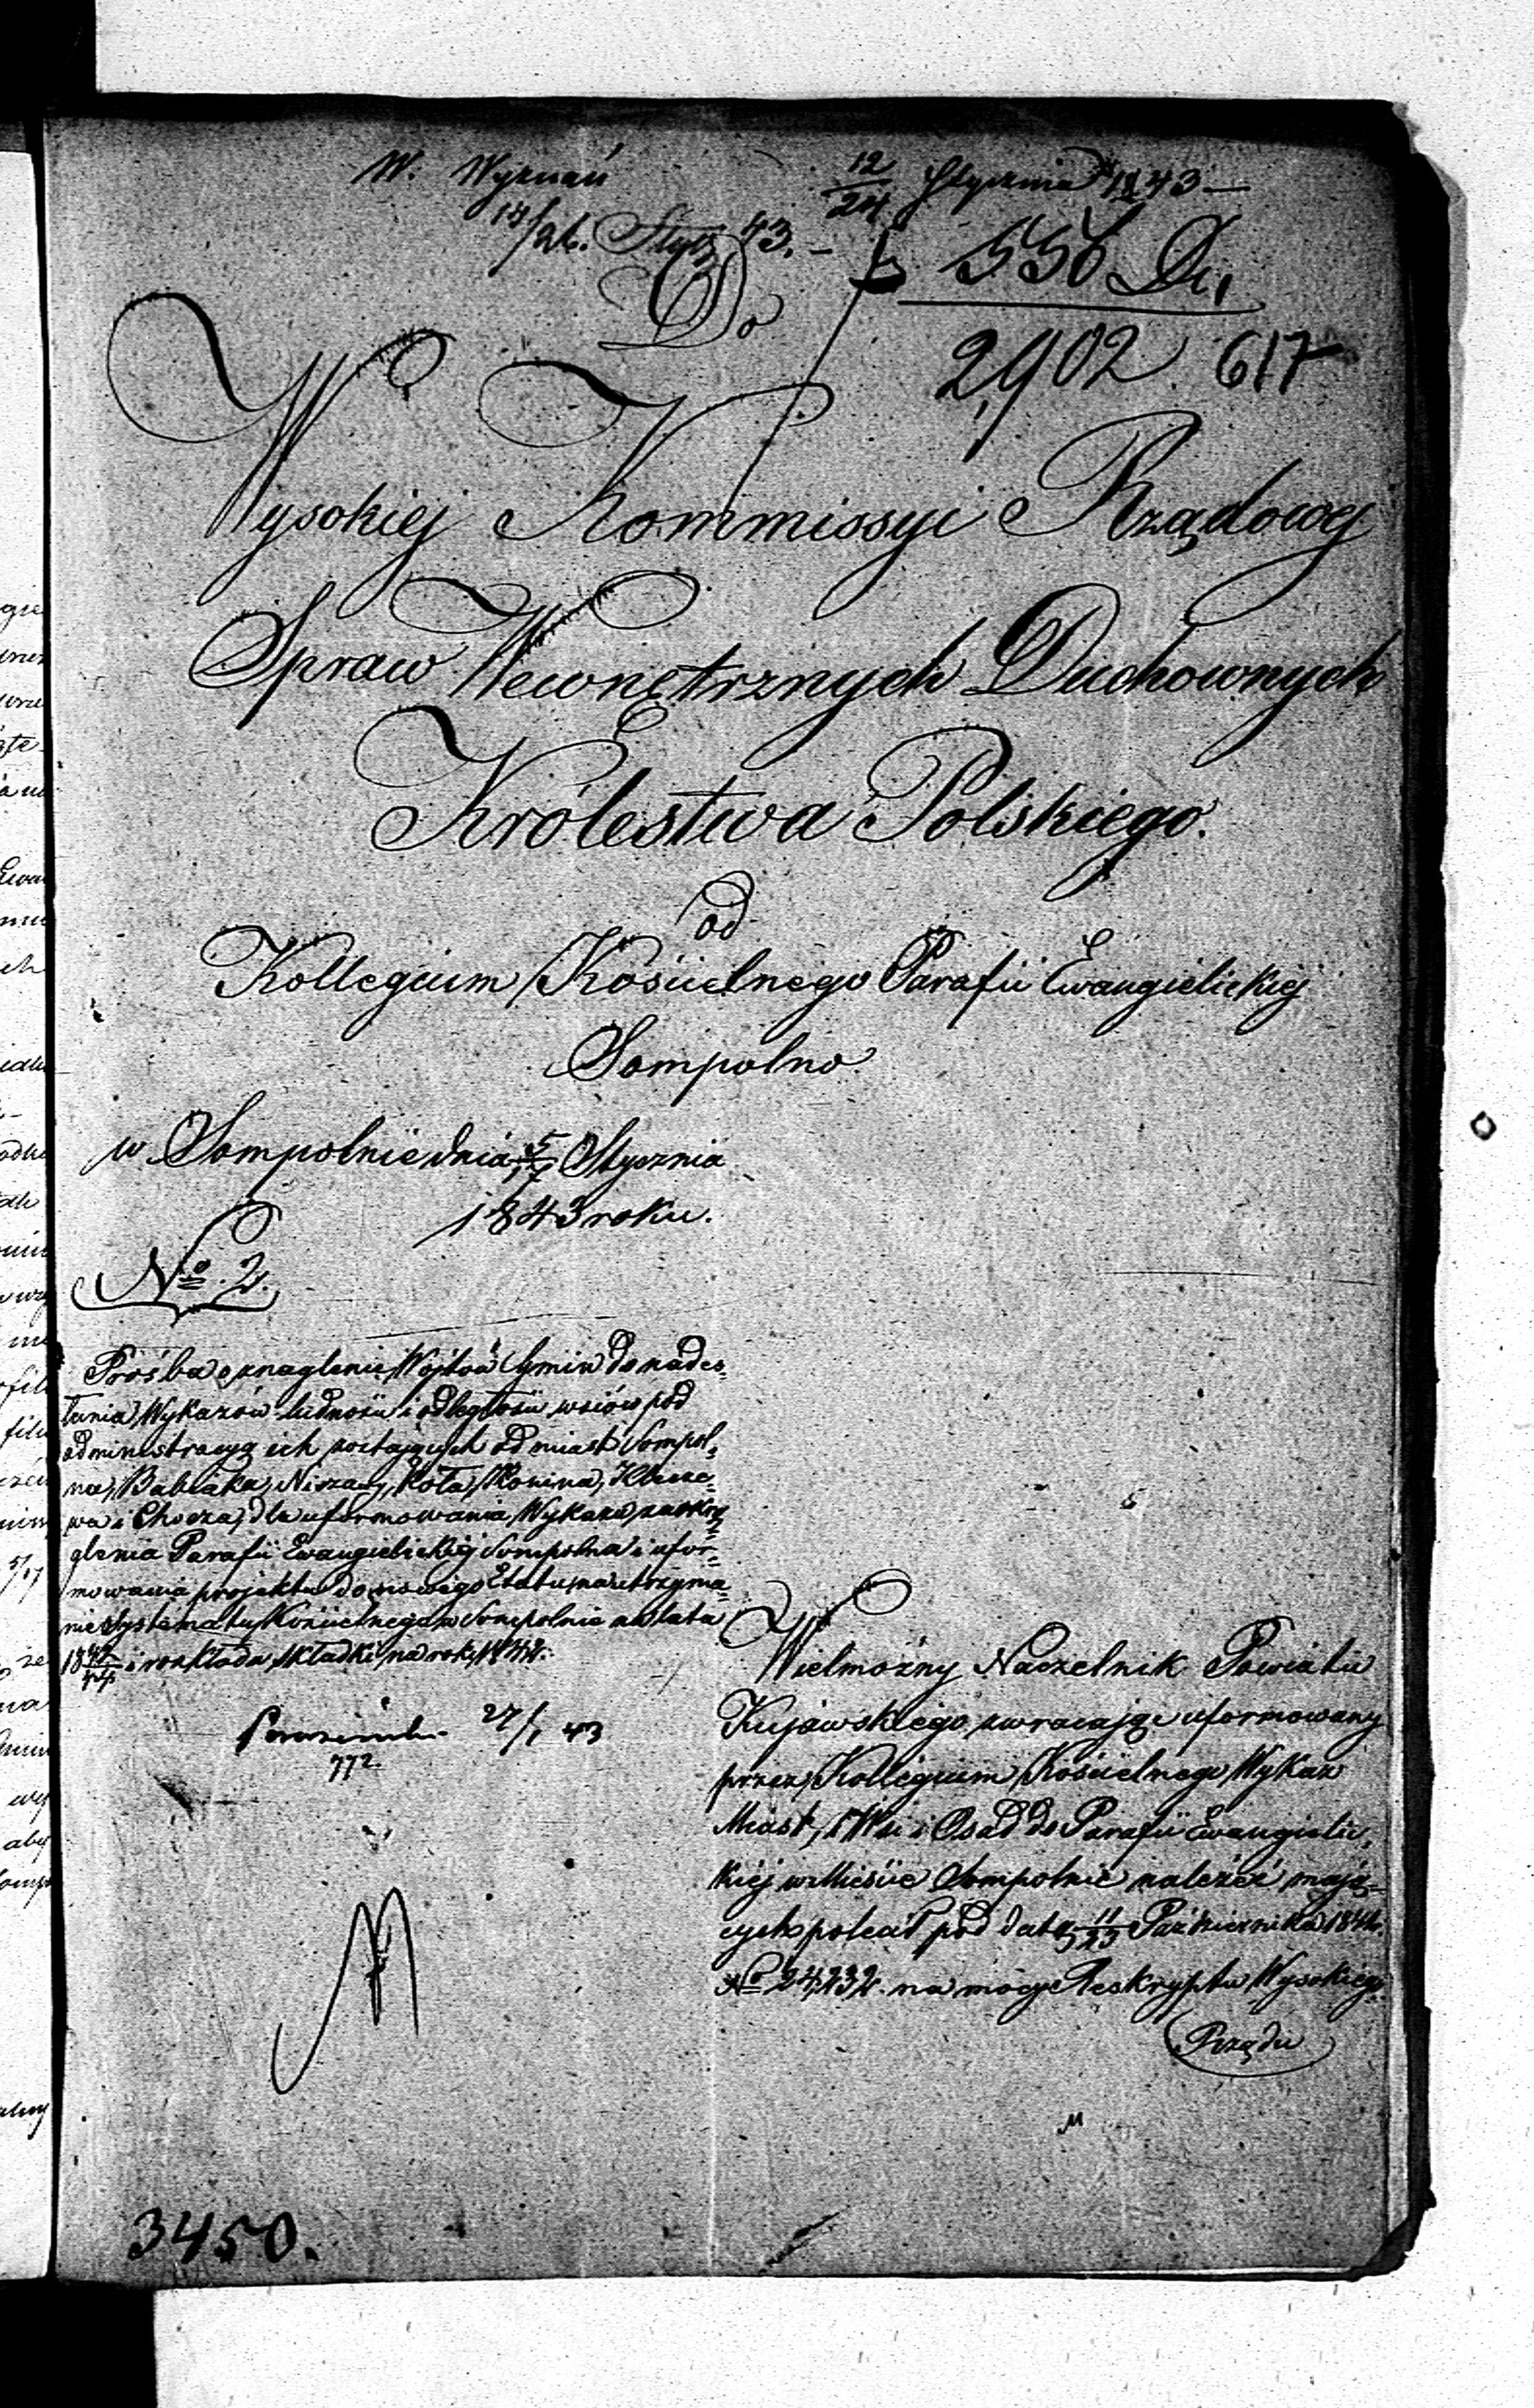 W. Wyznań
12/24 Stycznia 1843 —
14/26. Stycz 43. —
556
2,902. 617
Do
Wysokiej Kommissyi Rządowej
Spraw Wewnętrznych Duchownych
Królestwa Polskiego.
od
Kollegium Kościelnego Parafii Ewangielickiej
Sompolno
w Sompolnie dnia 5/17 Stycznia
1843 roku.
No. 2.
Prośba o znaglenie Wójtów Gmin do nades-
łania Wykazów ludności i odległości wsiów pod
administracyą ich zostających od miast Sompol-
na, Babiaka, Koła, Konina,
wa i Chocza, dla uformowania Wykazu zaokrą-
glenia Parafii Ewangielickiej Sompolna i ufor-
mowania projektu do nowego Etatu na utrzyma-
nie Systematu Kościelnego w Sompolnie na lata
i rozkładu składki na rok
27/1 43
772.
Wielmożny Naczelnik Powiatu
Kujawskiego, zwracając uformowany
przez Kollegium Kościelnego Wykaz
Miast, Wsi i Osad do Parafii Ewangielic-
kiej w Mieście Sompolnie należeć mają-
cych polecił pod datą 11/23 Października 1842.
No 24,232. na mocy Reskryptu Wysokiego
Rządu
3450.